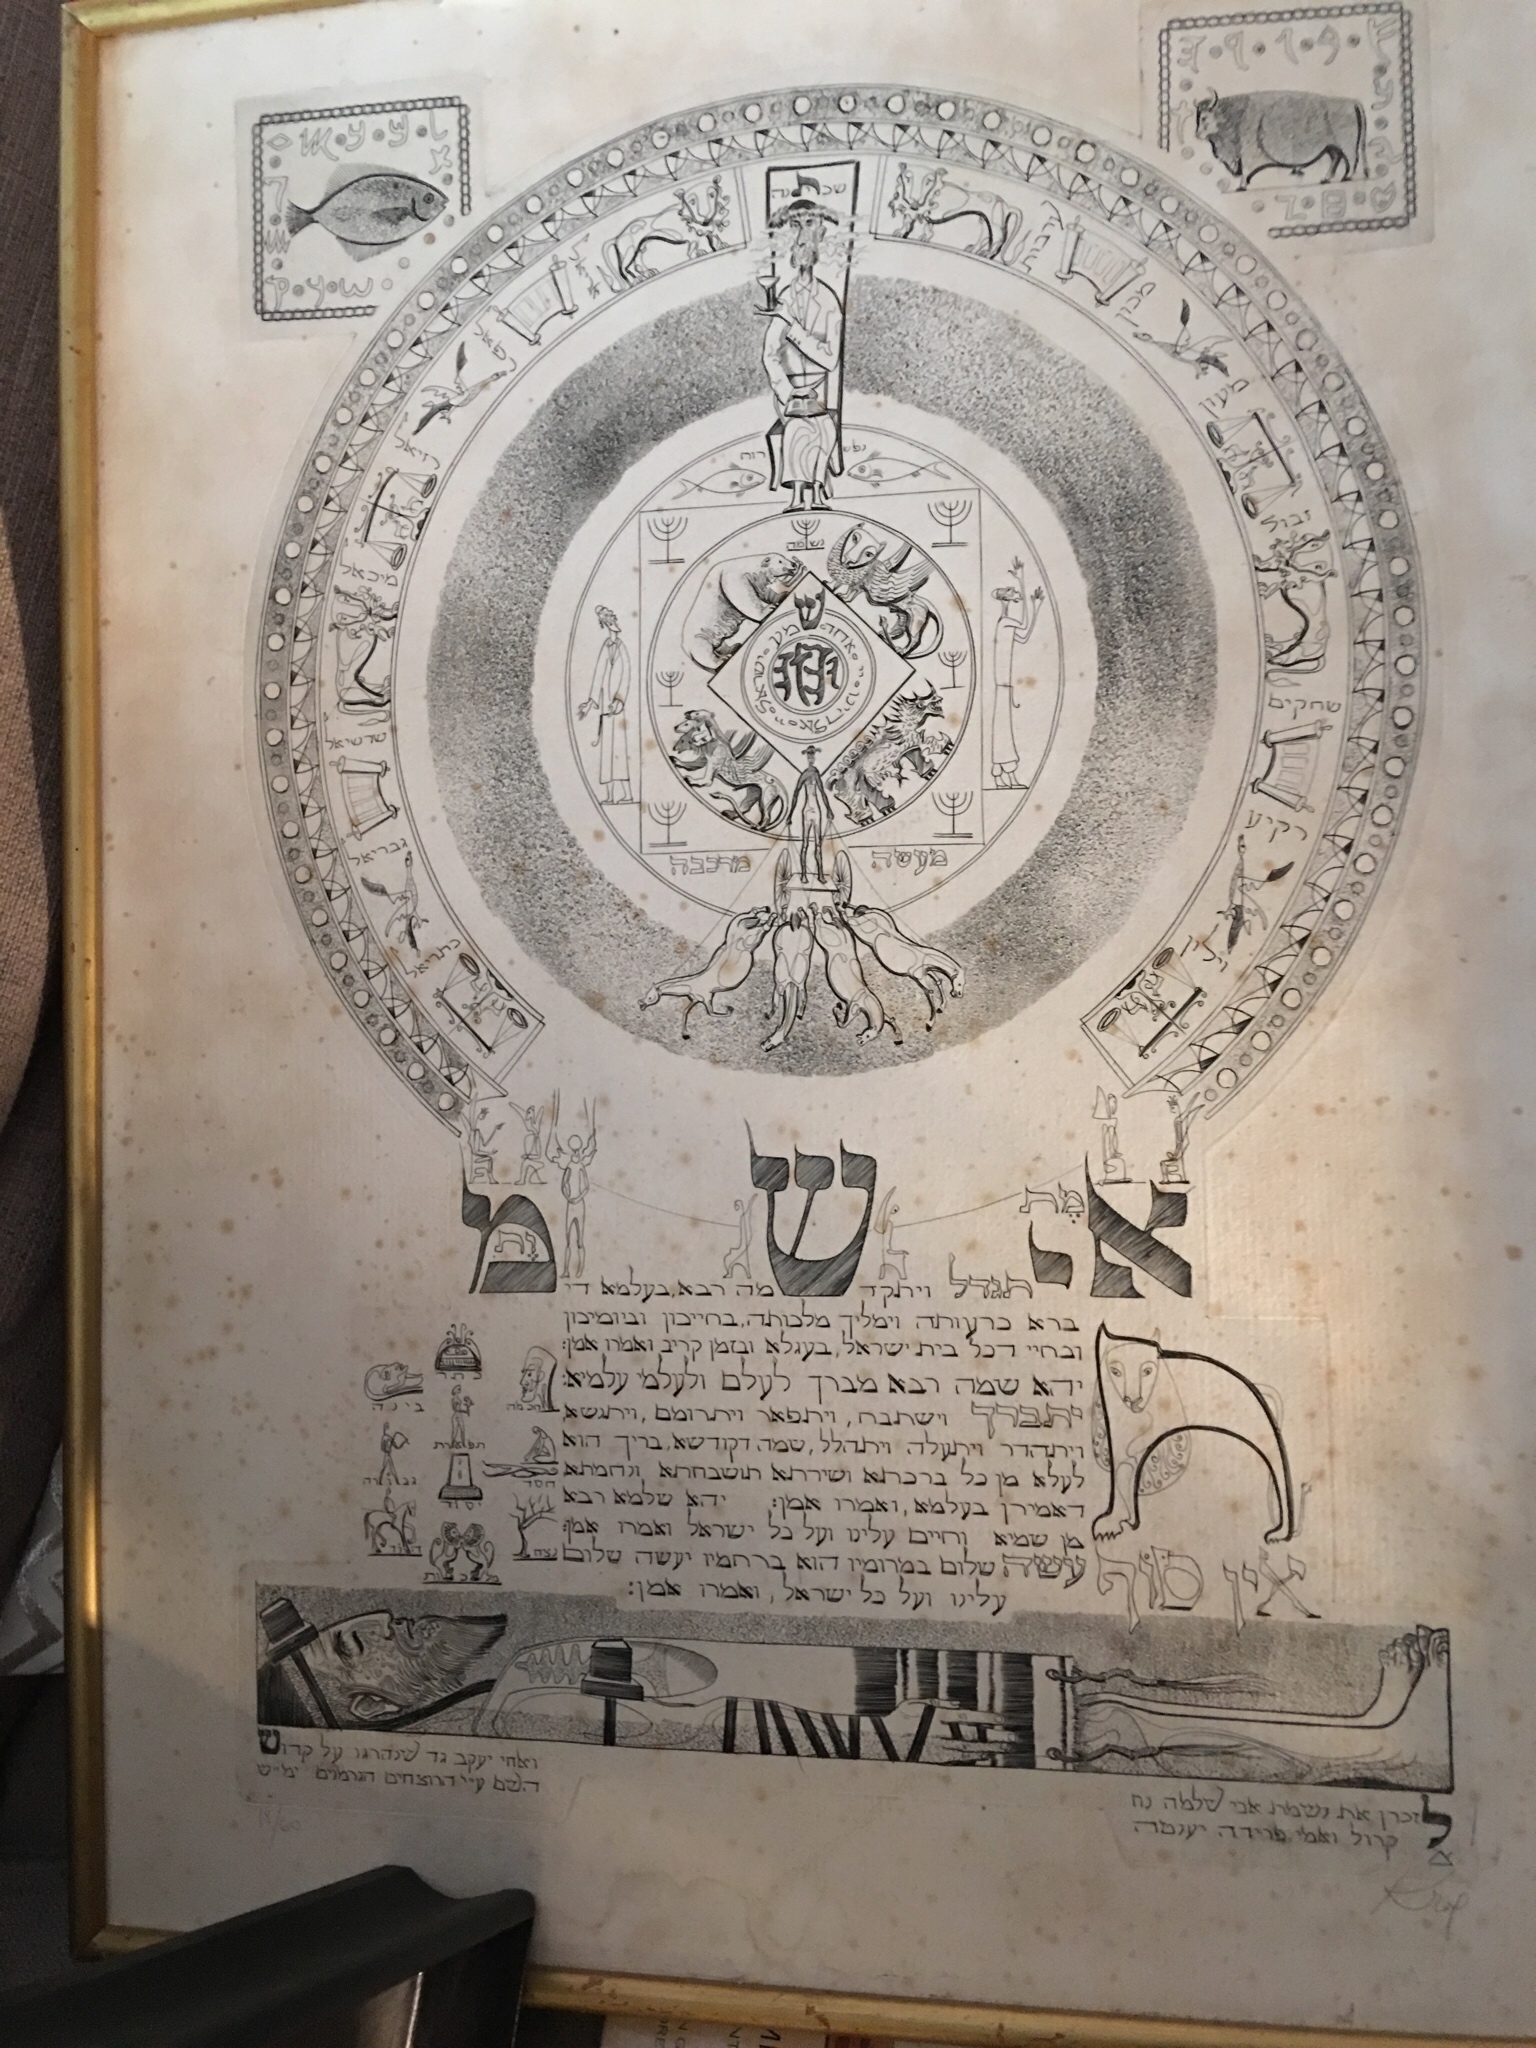 שכינה
רוח
נפש
נשמה
ש
שמע ישראל יי אלהינו יי אחד
יהוה
מעשה
מרכבה
רזיאל
מיכאל
שדשיאל
גבריאל
ערבות
מכון
מעון
זבול
שחקים
רקיע
וילון
א מ ש
אמת
מות
יתגדל ויתקד
ש
מה רבא, בעלמא די
ברא כרעותה וימליך מלכותה, בחייכון וביומיכון
ובחיי דכל בית ישראל, בעגלא ובזמן קריב ואמרו אמן:
יהא שמה רבא מברך לעלם ולעלמי עלמיא:
יתברך וישתבח, ויתפאר ויתרומם, ויתנשא
ויתהדר ויתעלה ויתהלל, שמה דקודשא, בריך הוא
לעלא מן כל ברכתא ושירתא תושבחתא ונחמתא
דאמירן בעלמא, ואמרו אמן: יהא שלמא רבא
מן שמיא וחיים עלינו ועל כל ישראל ואמרו אמן:
עושה שלום במרומיו הוא ברחמיו יעשה שלום
עלינו ועל כל ישראל, ואמרו אמן:
כתר
בינה
חכמה
תפארת
גבורה
חסד
יסוד
הוד
נצח
מלכות
אין סוף
לזכרון את נשמת אבי שלמה נח
קרול ואמי פרידה יענטה
ואחי יעקב גד שנהרגו על קדוש
השם ע״י הרוצחים הגרמנים ימ״ש